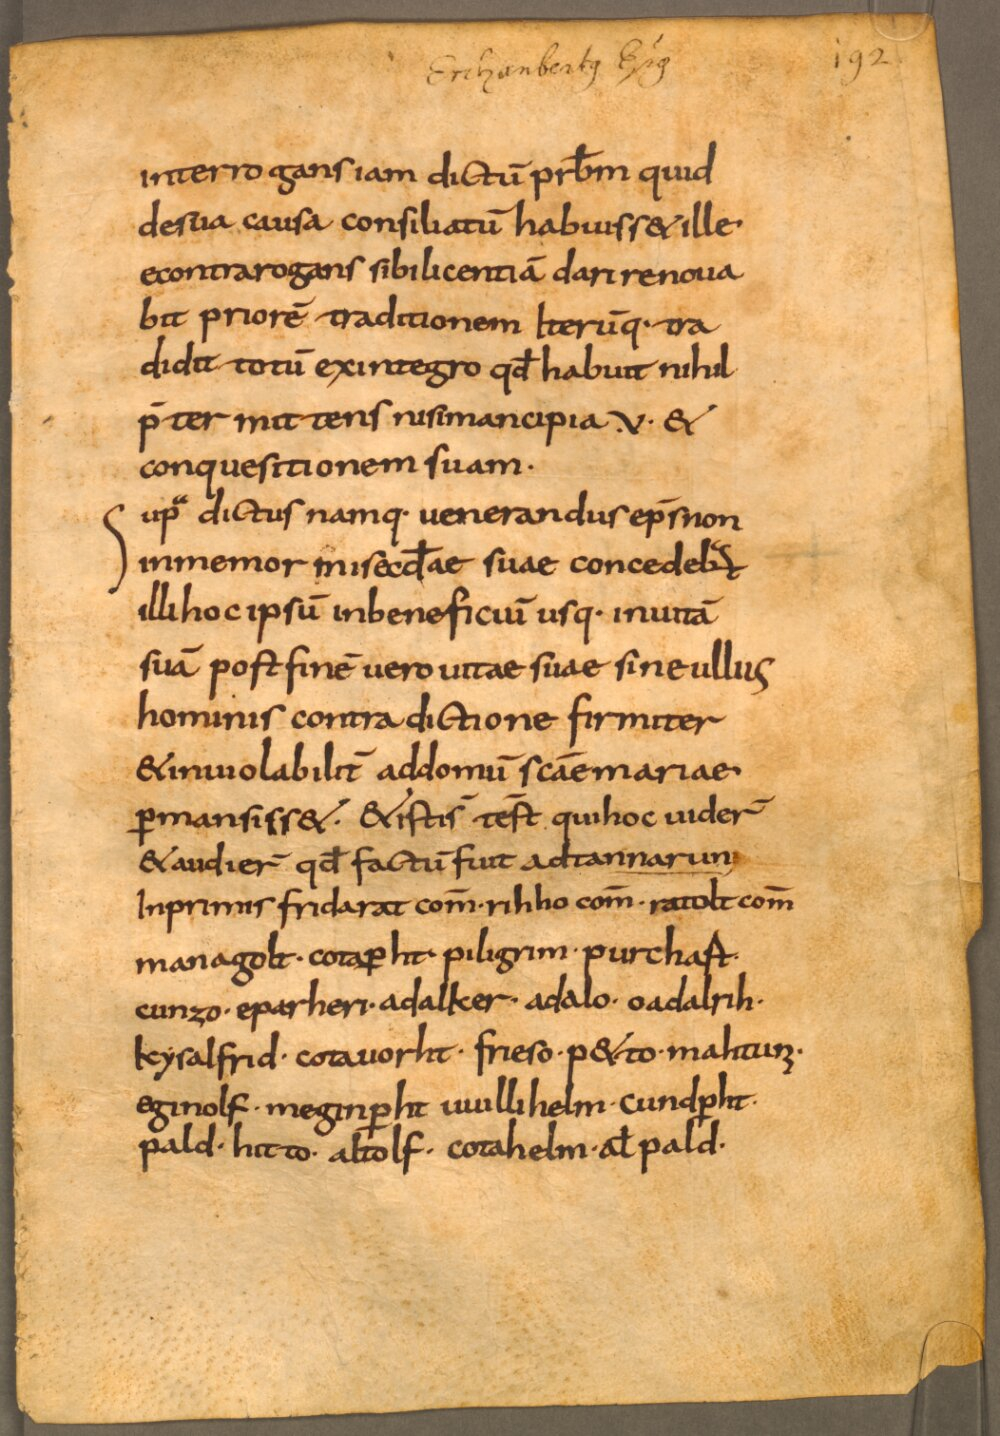 Erchanbertg Ep̄g 192
interrogans iam dictū prb̄m quid
desua causa consiliatū habuiss& ille·
econtrarogans sibi licentiā dari renoua
bit priorē traditionem Iterūq· tra
didit totū exintegro qd̄ habuit nihil
p̄ter mittens nisi mancipia v· &
conquesitionem suam·
Supᵃ dictus namq· uenerandus ep̄s non
inmemor misecd̄ae suae concedeb
illi hoc ipsū inbeneficiū usq· inuitā
suā post finē uero uitae suae sine ullius
hominis contradictione firmiter
& inuiolabilit̄ addomū sc̄ae mariae·
ꝑmansiss&· & istis test̄ qui hoc uider̄
& audier̄ qd̄ factū fuit adtannarun
Inprimis fridarat com̄· rihho com̄· ratolt com̄
managolt· cotaꝑht· piligrim· purchaft·
cunzo· eparheri· adalker· adalo· oadalrih·
keysalfrid· cotauorht· frieso· p&to· mahtunz·
eginolf· meginꝑht uuillihelm· cundꝑht·
pald· hitto· altolf· cotahelm· al̄pald·